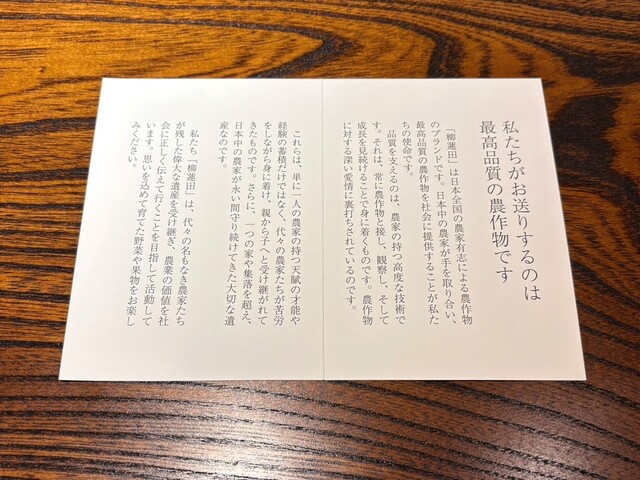 私たちがお送りするのは
最高品質の農作物です
「柳蓮田」は日本全国の農家有志による農作物
のブランドです。日本中の農家が手を取り合い、
最高品質の農作物を社会に提供することが私た
ちの使命です。
品質を支えるのは、農家の持つ高度な技術で
す。それは、常に農作物と接し、観察し、そして
成長を見続けることで身に着くものです。農作物
に対する深い愛情に裏打ちされているのです。
これらは、単に一人の農家の持つ天賦の才能や
経験の蓄積だけではなく、代々の農家たちが苦労
をしながら身に着け、親から子へと受け継がれて
きたものです。さらに、一つの家や集落を超え、
日本中の農家が永い間守り続けてきた大切な遺
産なのです。
私たち「柳蓮田」は、代々の名もなき農家たち
が残した偉大な遺産を受け継ぎ、農業の価値を社
会に正しく伝えて行くことを目指して活動して
います。思いを込めて育てた野菜や果物をお楽し
みください。